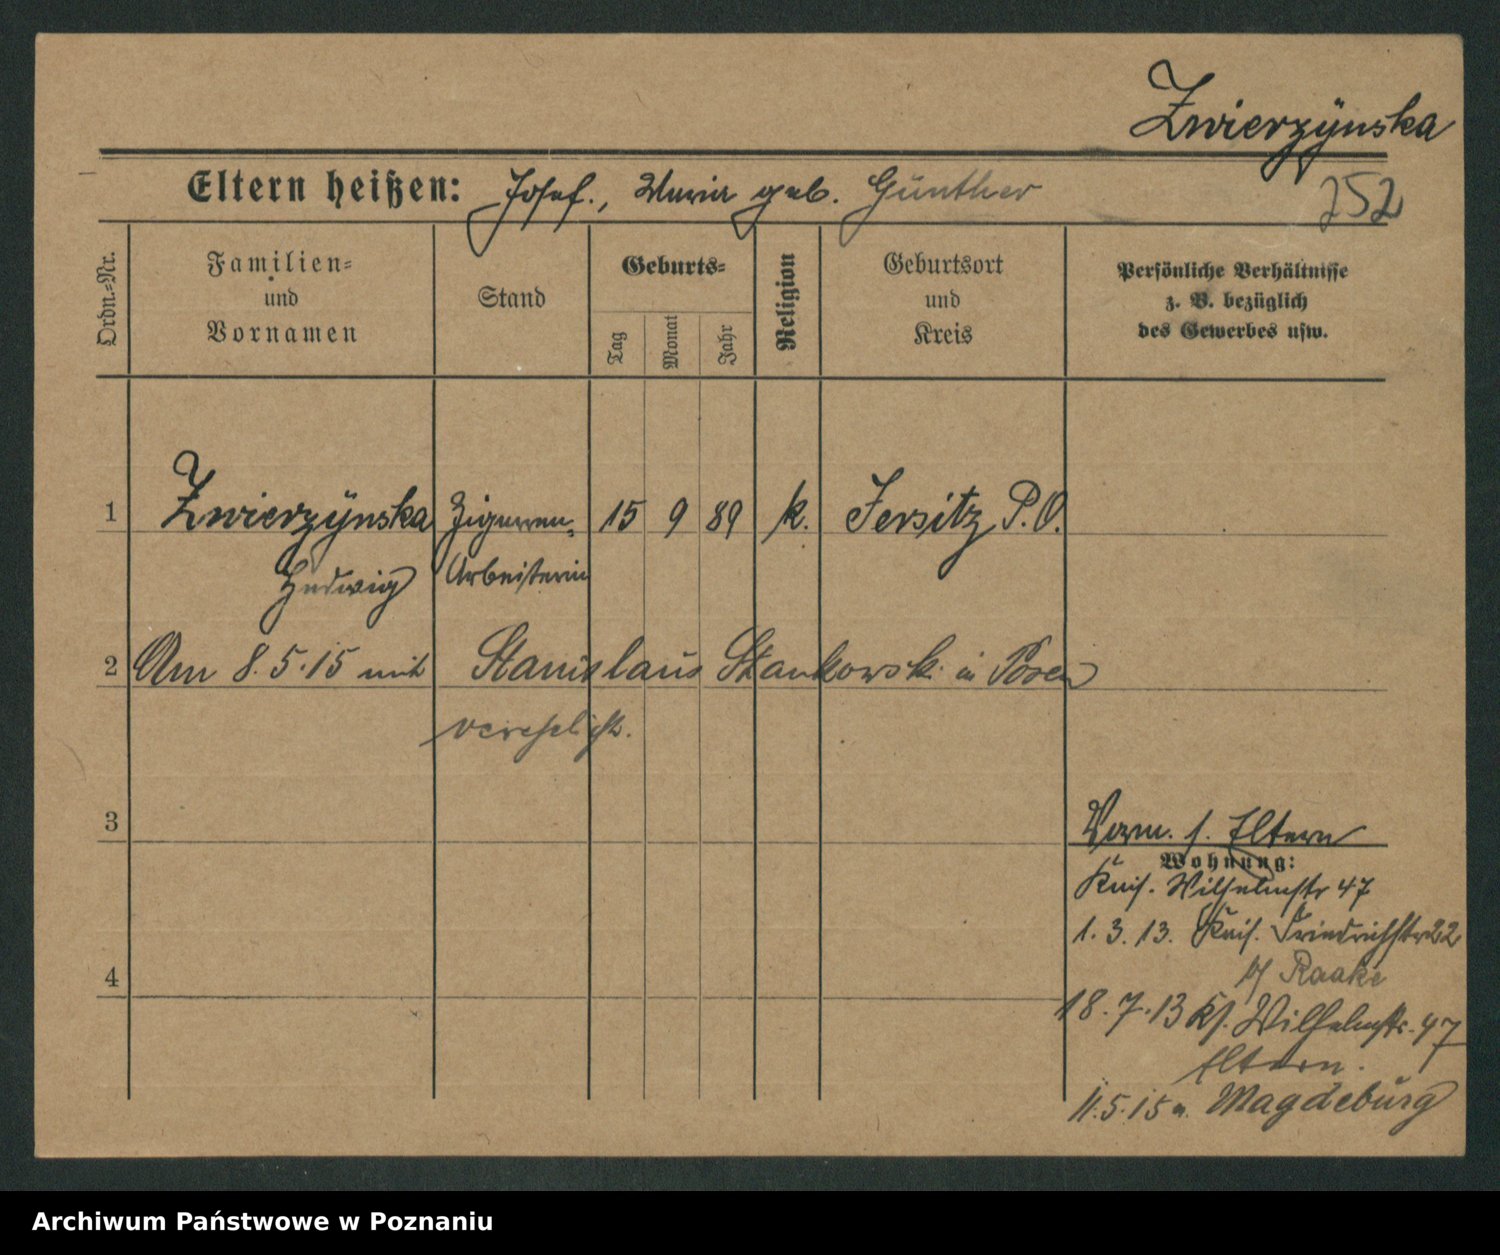 Zwierzÿnska
Eltern heißen: Josef., Maria geb. Günther
252
Ordn.-Nr.
Familien-
und
Vornamen
Stand
Geburts-
Tag
Monat
Jahr
Religion
Geburtsort
und
Kreis
Persönliche Verhältnisse
z. B. bezüglich
des Gewerbes usw.
1 Zwierzÿnska Zigarren- 15 9 89 k. Jersitz P.O.
Hedwig Arbeiterin
2 Am 8.5.15 mit Stanislaus Stankowski in Posen
verehelicht.
3
Vorm. s. Eltern
Wohnung:
Kais. Wilhelmstr 47
1.3.13. Kais. Friedrichstr 22
b/ Raake
4
18.7.13 Ks. Wilhelmstr. 47
Eltern.
11.5.15 n. Magdeburg
Archiwum Państwowe w Poznaniu